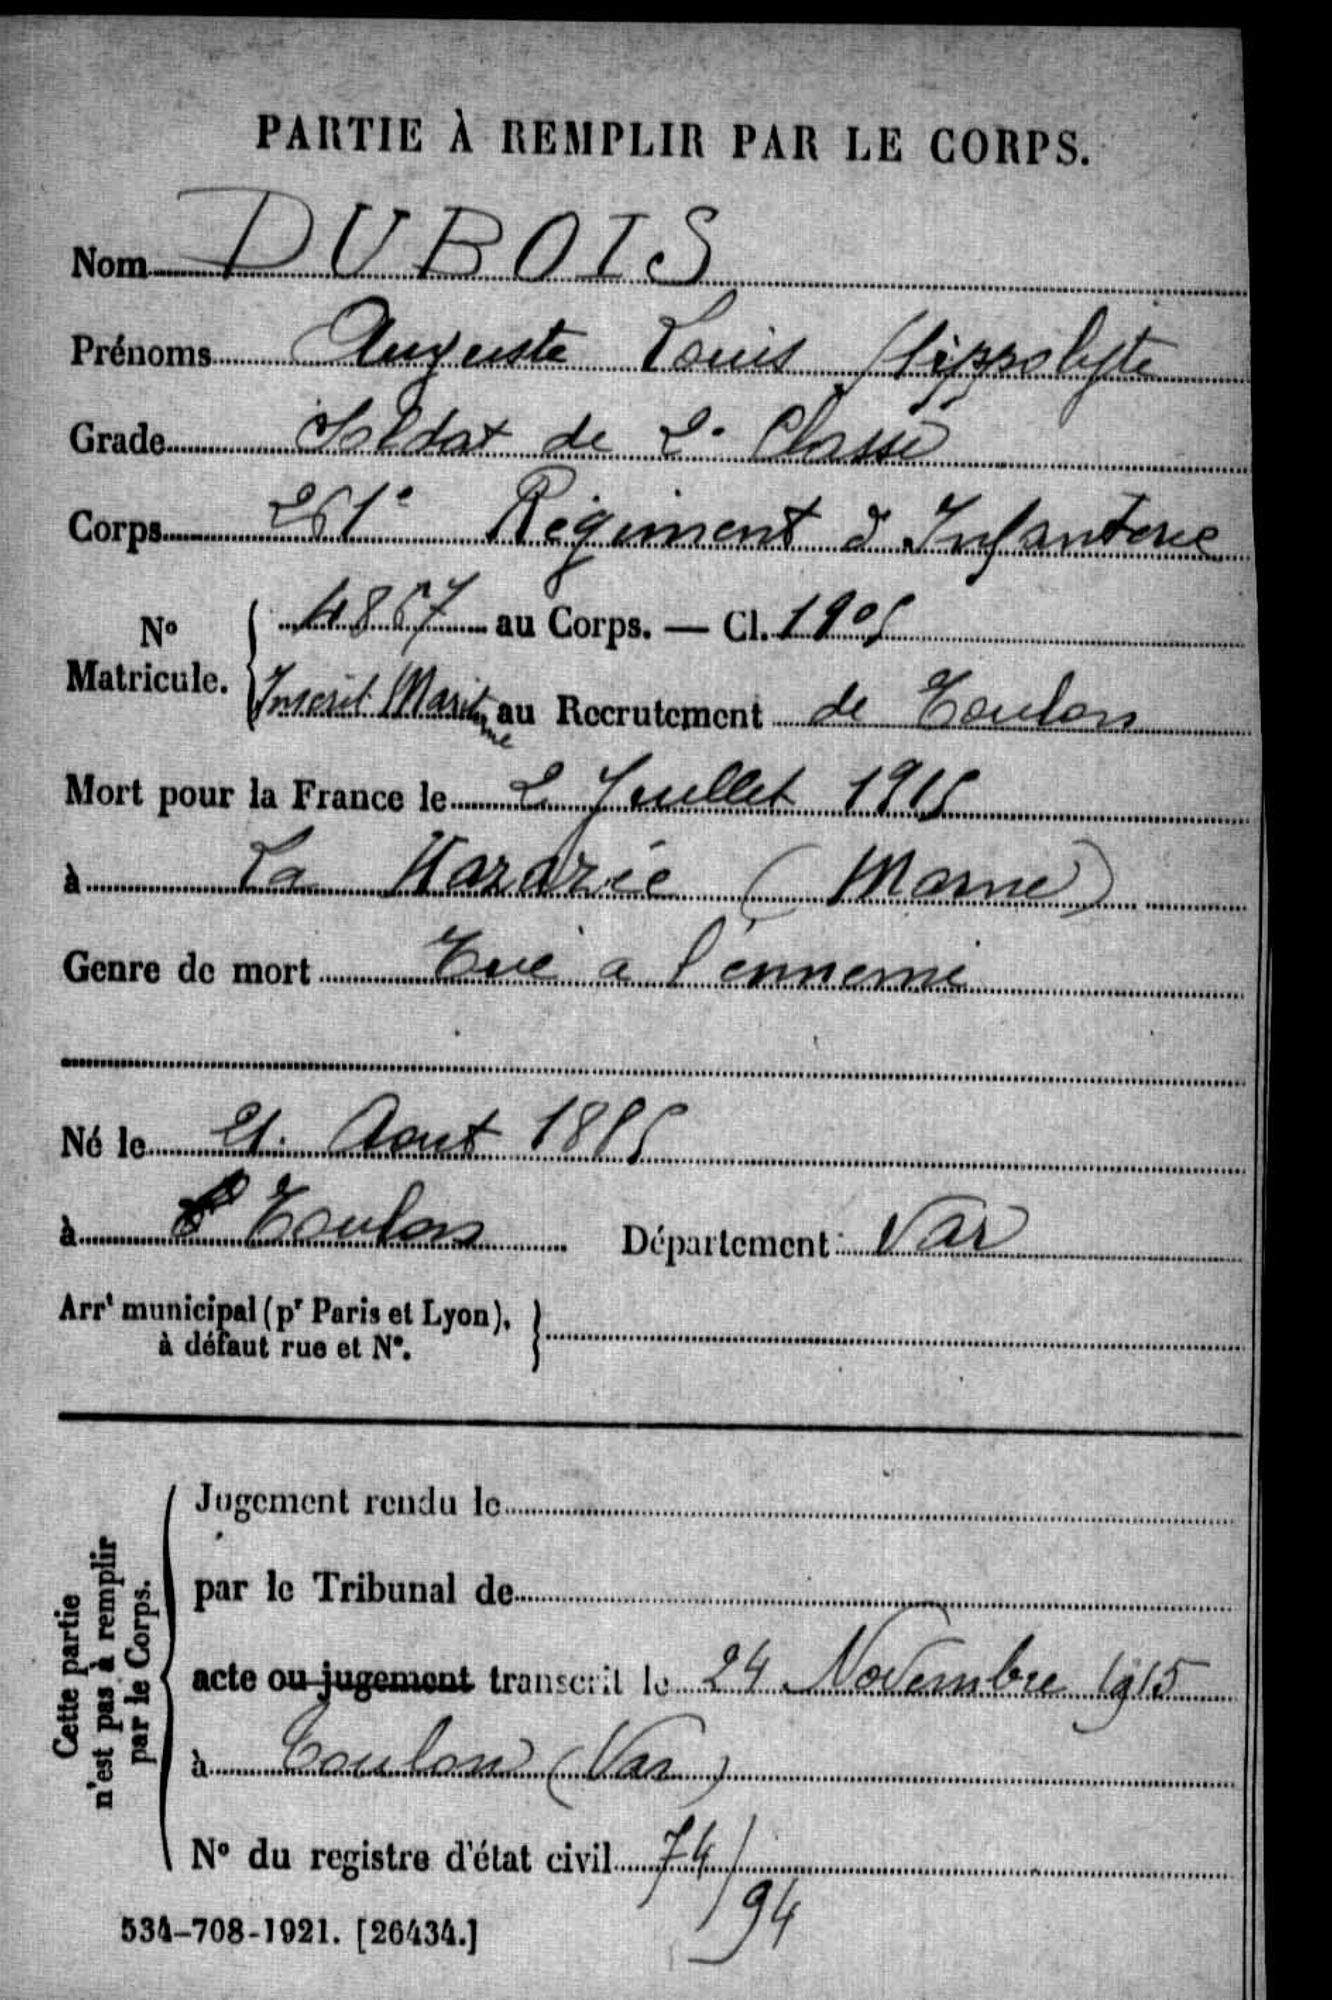 PARTIE À REMPLIR PAR LE CORPS.
Nom DUBOIS
Prénoms Auguste Louis Hippolyte
Grade Soldat de 2e Classe
Corps 261e Régiment d'Infanterie
No Matricule. 4867 au Corps. — Cl. 1905
Inscrit Maritime au Recrutement de Toulon
Mort pour la France le 2 Juillet 1915
à La Harazée (Marne)
Genre de mort Tué a l'ennemi
Né le 21. Aout 1885
à Toulon Département Var
Arrt municipal (pr Paris et Lyon),
à défaut rue et No.
Cette partie
n'est pas à remplir
par le Corps.
Jugement rendu le
par le Tribunal de
acte ou jugement transcrit le 24 Novembre 1915
à Toulon (Var)
No du registre d'état civil 74/94
534-708-1921. [26434.]